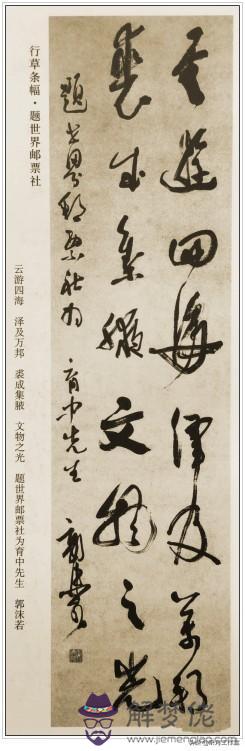 云遊四海澤及萬邦
裘成集腋文物之光
題世界郵票社為 育中先生 郭沫若
行草条幅·题世界邮票社
云游四海 泽及万邦 裘成集腋 文物之光 题世界邮票社为育中先生 郭沫若
解梦佬
www.jiemenglao.com